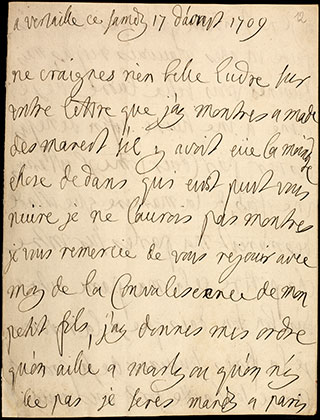 a versaille ce samdy 17 d'aoust 1709
12
ne craignes rien belle Ludre sur
vostre lettre que j'ay montres a mad
des marest s'il y avoit eüe la moindre
chose dedans qui eust puit vous
nuire je ne l'aurois pas montres
je vous remercie de vous rejouir avec
moy de la Convalesence de mon
petit fils, j'ay donnes mes ordre
qu'on aille a marly ou qu'on n'y
pas je seres a paris